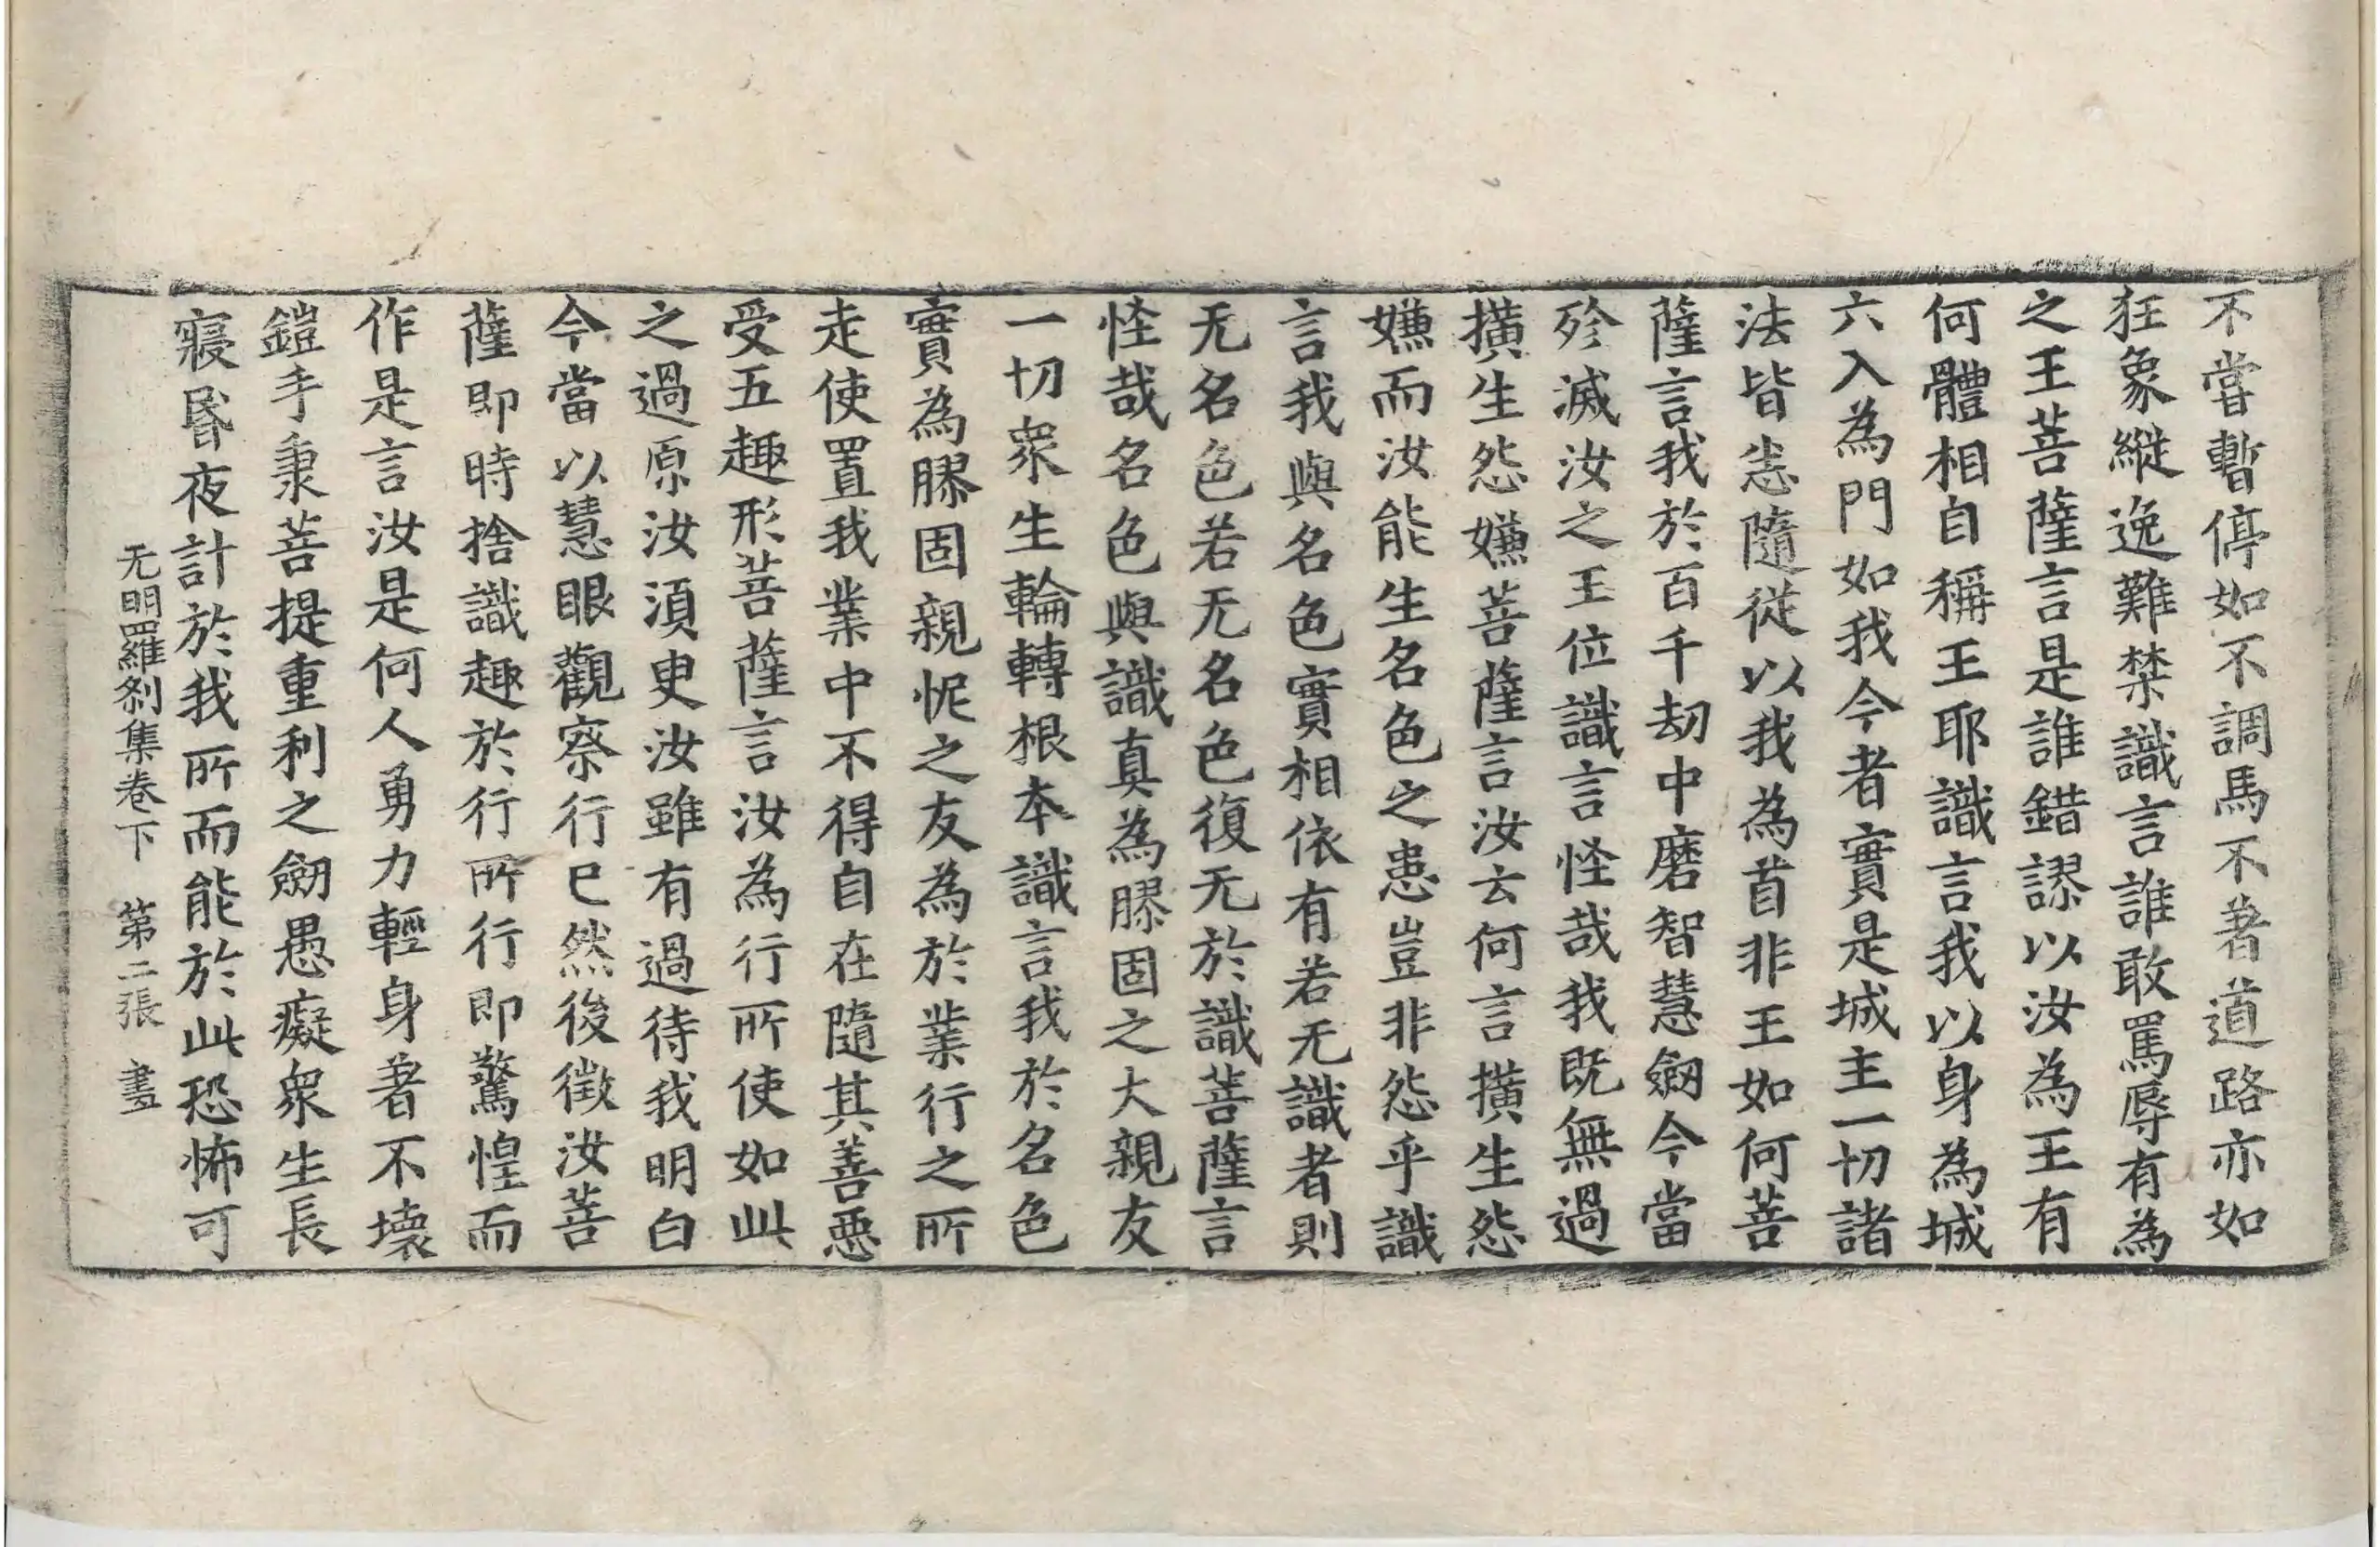 不嘗暫停如不調馬不著道路亦如
狂象縱逸難禁識言誰敢罵辱有為
之王菩薩言是誰錯謬以汝為王有
何體相自稱王耶識言我以身為城
六入為門如我今者實是城主一切諸
法皆悉隨從以我為首非王如何菩
薩言我於百千劫中磨智慧劔今當
殄滅汝之王位識言怪哉我既無過
撗生怨嫌菩薩言汝云何言撗生怨
嫌而汝能生名色之患豈非怨乎識
言我與名色實相依有若无識者則
无名色若无名色復无於識菩薩言
怪哉名色與識真為膠固之大親友
一切衆生輪轉根本識言我於名色
實為膠固親怩之友為於業行之所
走使置我業中不得自在隨其善惡
受五趣形菩薩言汝為行所使如此
之過原汝湏臾汝雖有過待我明白
今當以慧眼觀察行已然後徵汝菩
薩即時捨識趣於行所行即驚惶而
作是言汝是何人勇力輕身著不壞
鎧手秉菩提重利之劔愚癡衆生長
寢昬夜計於我所而能於此恐怖可
无明羅刹集卷下 第二張 畫